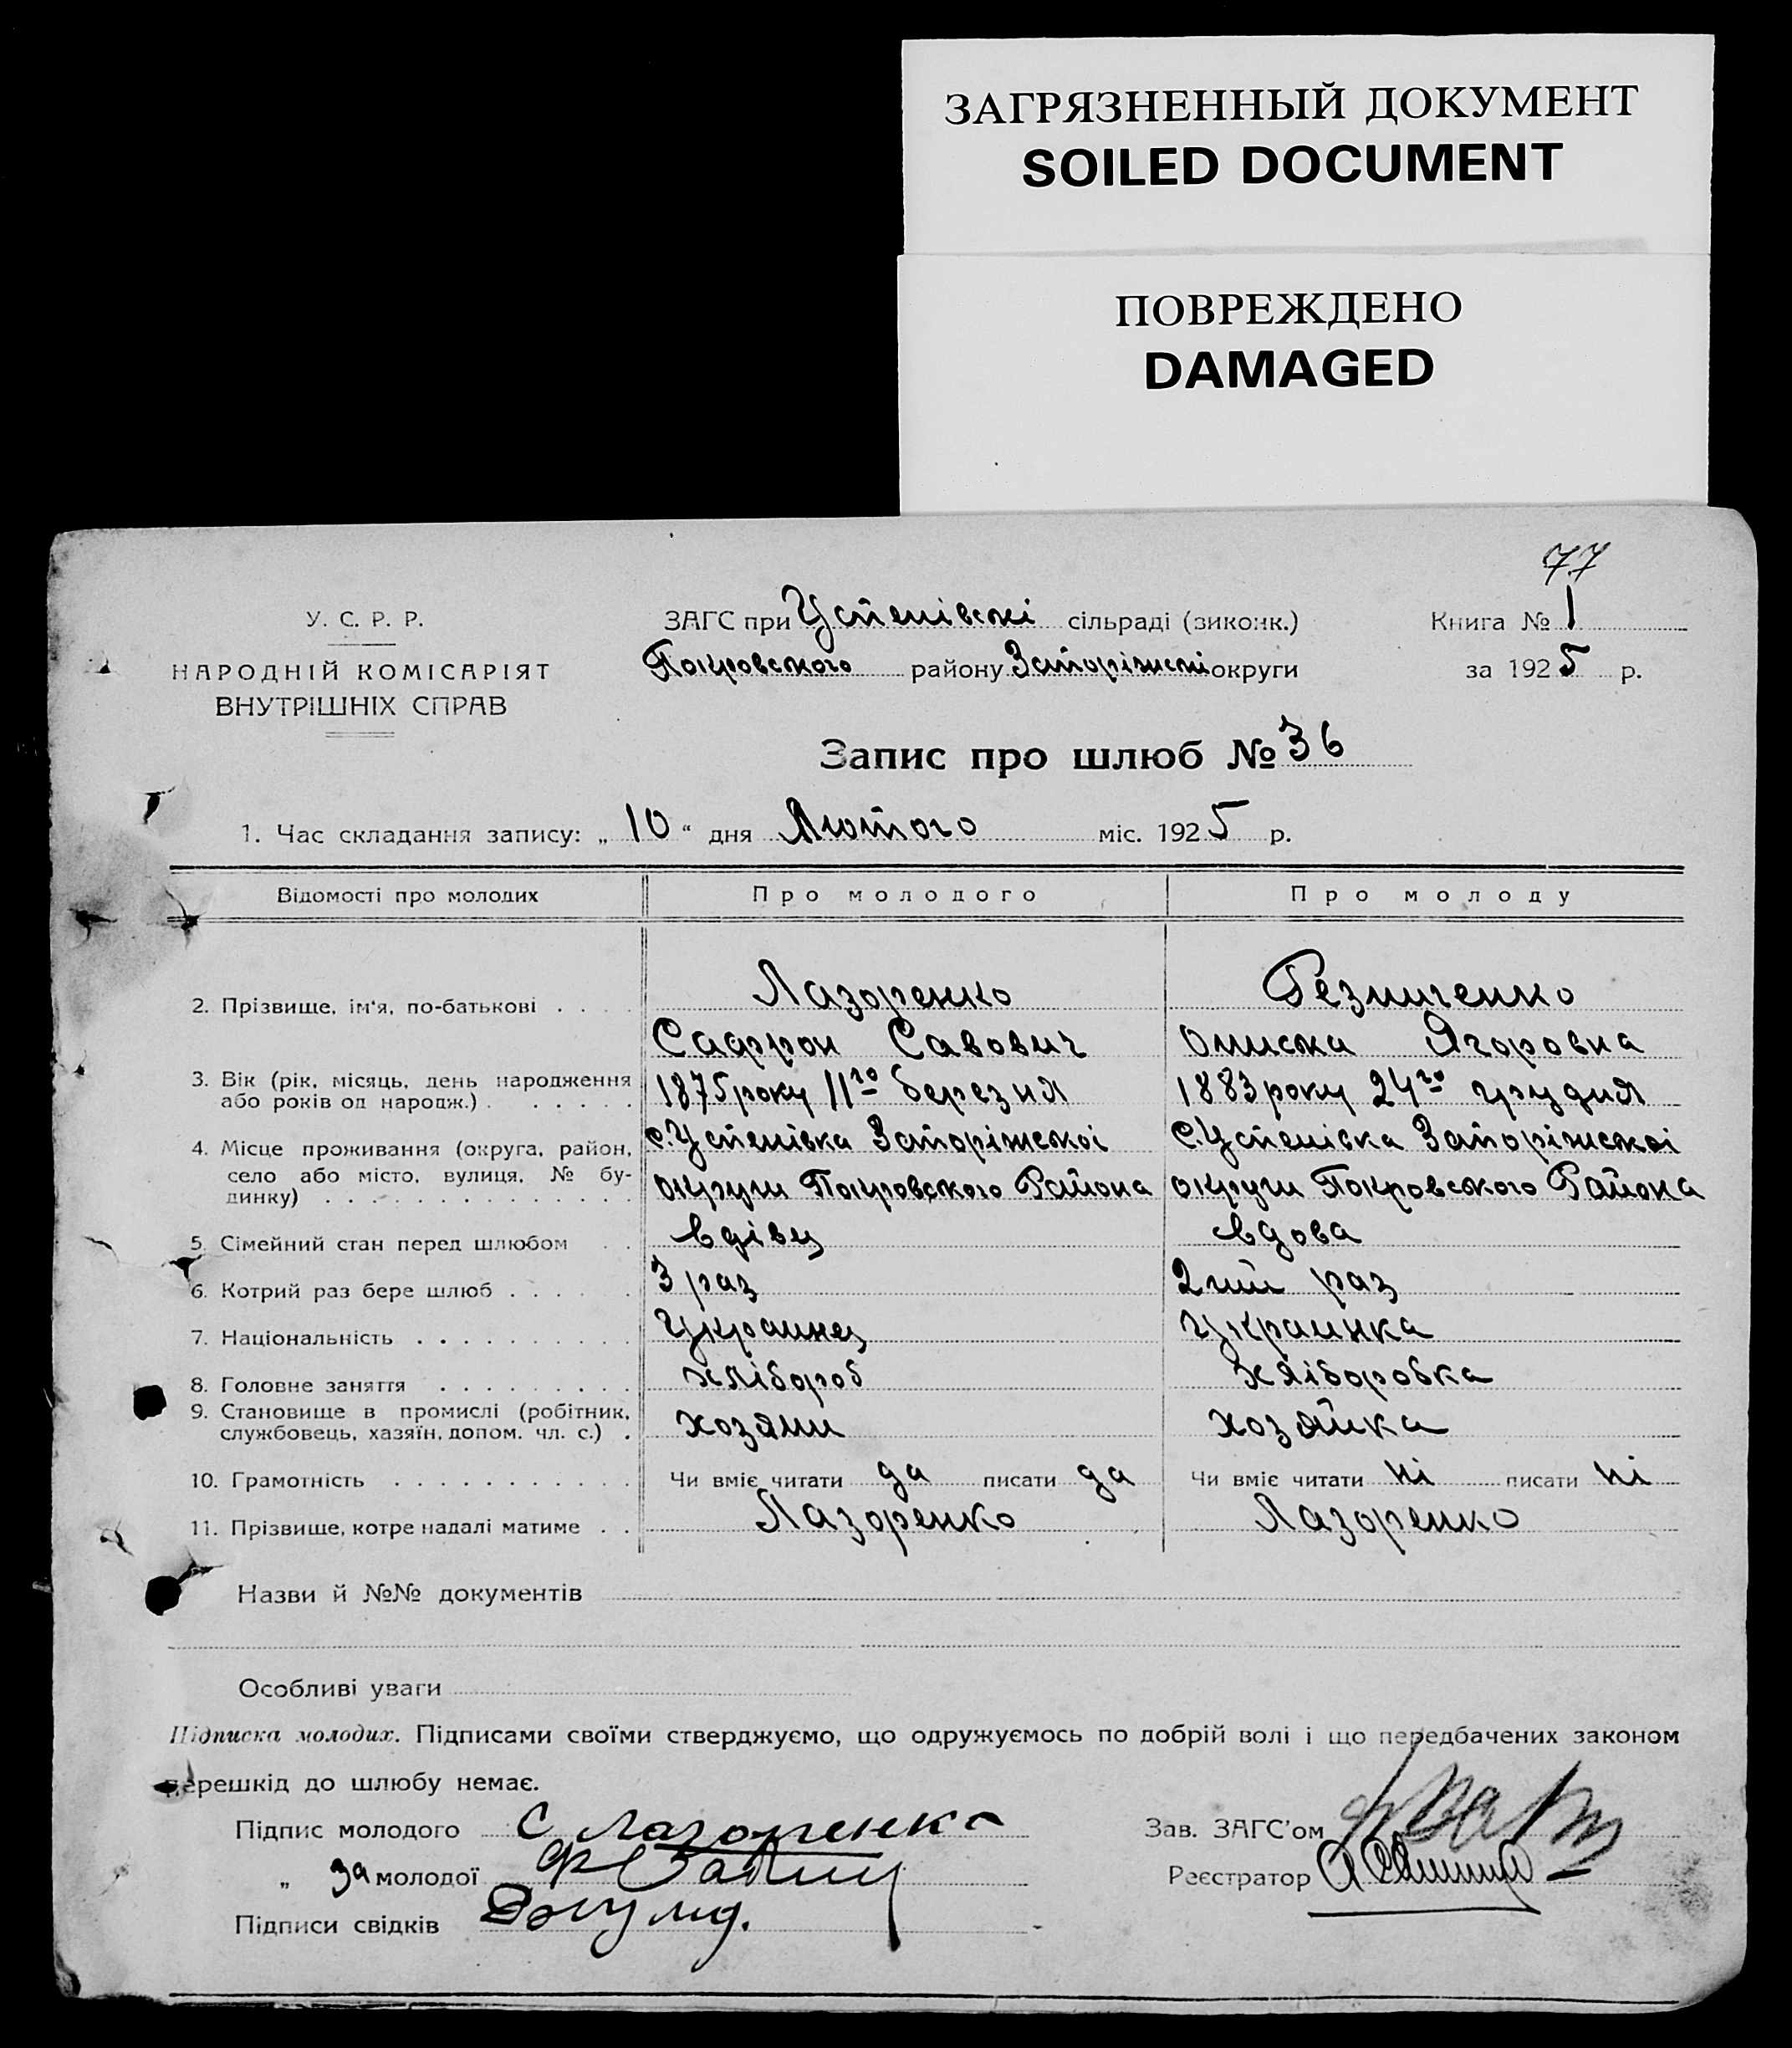 ЗАГРЯЗНЕННЫЙ ДОКУМЕНТ
SOILED DOCUMENT
ПОВРЕЖДЕНО
DAMAGED
77
У. С. Р. Р.
НАРОДНІЙ КОМІСАРІЯТ
ВНУТРІШНІХ СПРАВ
ЗАГС при Успенівскі сільраді (виконк.)
Покровського району Запоріжскі округи
Книга № 1
за 1925 р.
Запис про шлюб № 36
1. Час складання запису: „ 10 “ дня Лютого міс. 1925 р.
Відомості про молодих Про молодого Про молоду
2. Прізвище, ім'я, по-батькові . . . . Лазоренко Резниченко
Сафрон Савович Ониска Ягоровна
3. Вік (рік, місяць, день народження або років од народж.) . . . . . . 1875 року 11го березня 1883 року 24го грудня
4. Місце проживання (округа, район, село або місто, вулиця, № будинку) . . . . . . . . . . . . . .
с. Успенівка Запоріжскоі с. Успенівка Запоріжскоі
округи Покровського Района округи Покровського Района
5. Сімейний стан перед шлюбом . . вдівец вдова
6. Котрий раз бере шлюб . . . . . . 3 раз 2гий раз
7. Національність . . . . . . . . . . Украинец Украинка
8. Головне заняття . . . . . . . . . хлібороб хліборобка
9. Становище в промислі (робітник, службовець, хазяїн, допом. чл. с.) . хозяин хозяйка
10. Грамотність . . . . . . . . . . . Чи вміє читати да писати да Чи вміє читати ні писати ні
11. Прізвище, котре надалі матиме . . Лазоренко Лазоренко
Назви й №№ документів
Особливі уваги
Підписка молодих. Підписами своїми стверджуємо, що одружуємось по добрій волі і що передбачених законом
перешкід до шлюбу немає.
Підпис молодого С Лазоренко
Зав. ЗАГС'ом
„ за молодої
Реєстратор
Підписи свідків